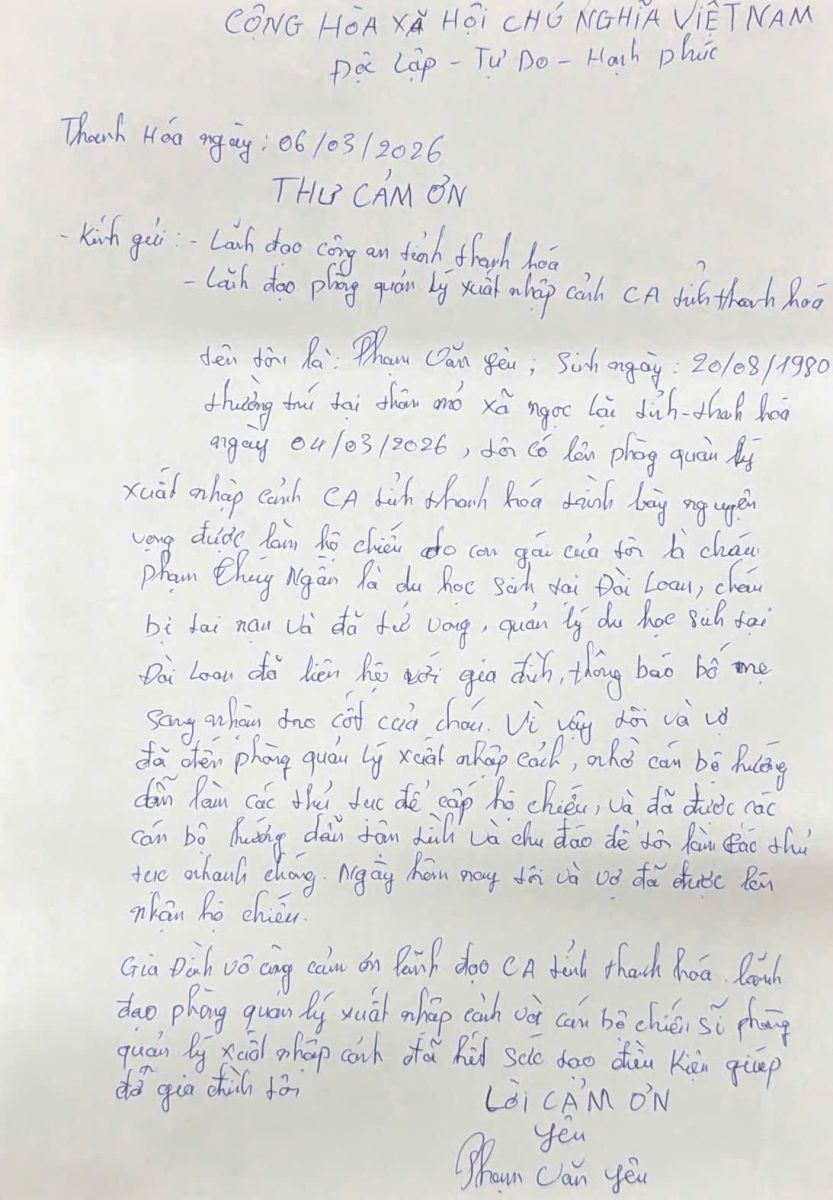 CỘNG HÒA XÃ HỘI CHỦ NGHĨA VIỆT NAM
Độc Lập - Tự Do - Hạnh phúc
Thanh Hóa ngày: 06/03/2026
THƯ CẢM ƠN
- Kính gửi: - Lãnh đạo công an tỉnh thanh hóa
- Lãnh đạo phòng quản lý xuất nhập cảnh CA tỉnh thanh hoá
tên tôi là: Phạm Văn Yêu; Sinh ngày: 20/08/1980
thường trú tại thôn mó xã ngọc lặc tỉnh-thanh hóa
ngày 04/03/2026, tôi có lên phòng quản lý
xuất nhập cảnh CA tỉnh thanh hóa trình bày nguyện
vọng được làm hộ chiếu do con gái của tôi là cháu
Phạm Thúy Ngân là du học sinh tại Đài Loan, cháu
bị tai nạn và đã tử vong, quản lý du học sinh tại
Đài Loan đã liên hệ với gia đình, thông báo bố mẹ
sang nhận tro cốt của cháu. Vì vậy tôi và vợ
đã đến phòng quản lý xuất nhập cảch, nhờ cán bộ hướng
dẫn làm các thủ tục để cấp hộ chiếu, và đã được các
cán bộ hướng dẫn tận tình và chu đáo để tôi làm các thủ
tục nhanh chóng. Ngày hôm nay tôi và vợ đã được lên
nhận hộ chiếu.
Gia Đình vô cùng cảm ơn lãnh đạo CA tỉnh thanh hóa. lãnh
đạo phòng quản lý xuất nhập cảnh và cán bộ chiến sĩ phòng
quản lý xuất nhập cảnh đã hết sức tạo điều kiện giúp
đỡ gia đình tôi
LỜI CẢM ƠN
Yêu
Phạm Văn Yêu